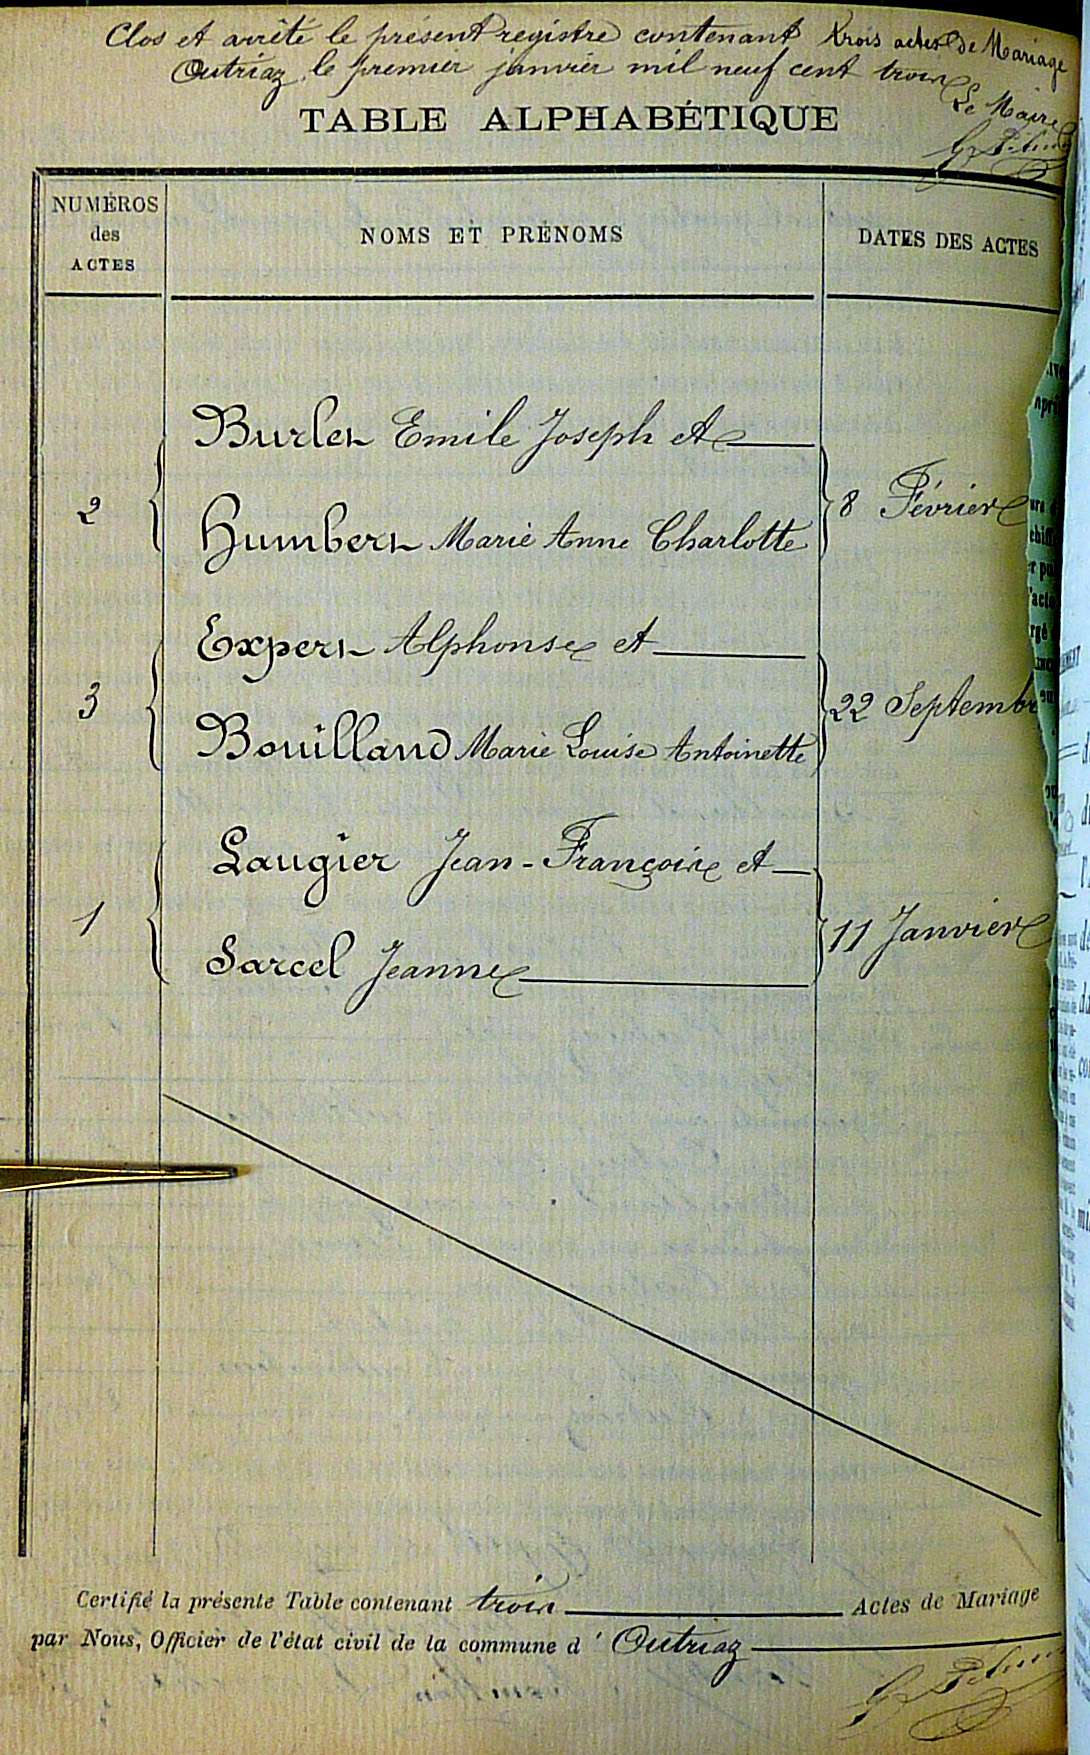 Clos et arrêté le présent registre contenant trois actes de Mariage
Outriaz, le premier janvier mil neuf cent trois
Le Maire
TABLE ALPHABÉTIQUE
NUMÉROS
des
ACTES
NOMS ET PRÉNOMS
DATES DES ACTES
Burlet Emile Joseph et
2
8 Février
Humbert Marie Anne Charlotte
Expert Alphonse et
3
22 Septembr
Bouilland Marie Louise Antoinette
Laugier Jean-François et
1
11 Janvier
Sarcel Jeanne
Certifié la présente Table contenant trois Actes de Mariage
par Nous, Officier de l'état civil de la commune d' Outriaz